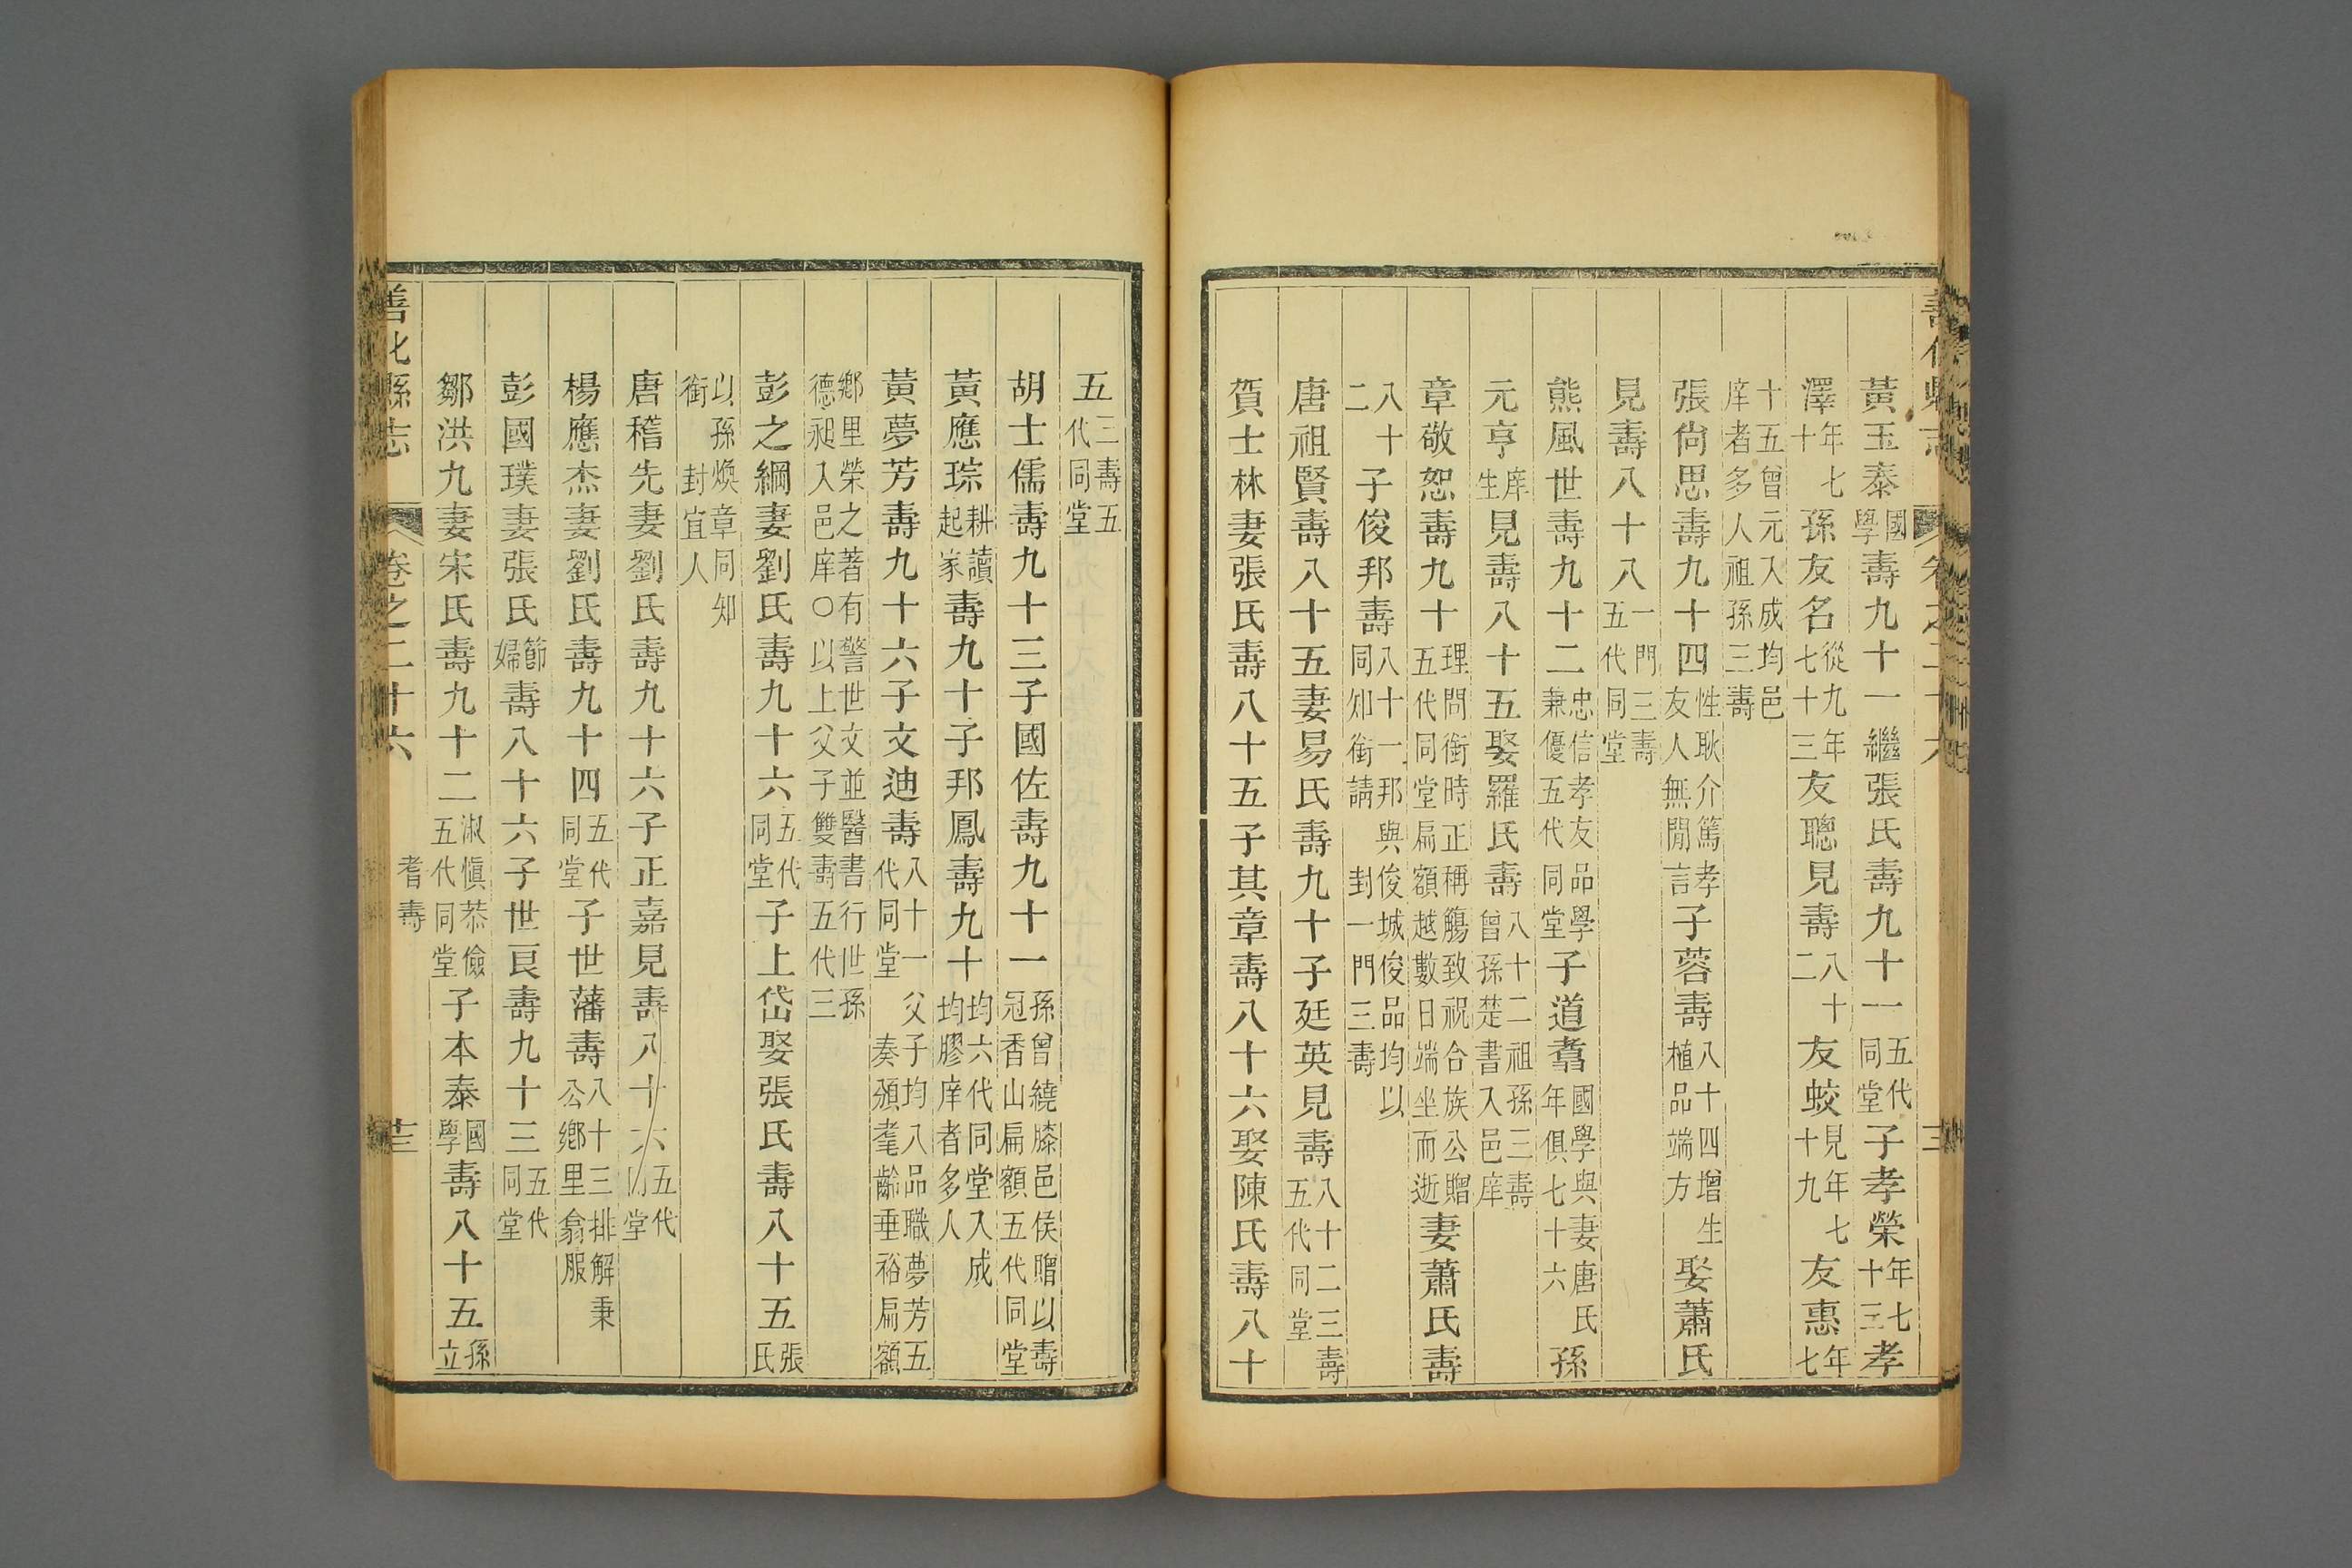 善化縣志 卷之二十六
黃玉泰國學壽九十一繼張氏壽九十一五代同堂子孝榮年七十三孝
澤年七十孫友名從九年七十三友聰見壽八十二友蛟見年七十九友惠年七
十五曾元入成均邑庠者多人祖孫三壽
張尙思壽九十四性耿介篤孝友人無閒言子蓉壽八十四增生植品端方娶蕭氏
見壽八十八一門三壽五代同堂
熊風世壽九十二忠信孝友品學兼優五代同堂子道耆國學與妻唐氏年俱七十六孫
元亨庠生見壽八十五娶羅氏壽八十二祖孫三壽曾孫楚書入邑庠
章敬恕壽九十理問銜時正稱觴致祝合族公贈五代同堂扁額越數日端坐而逝妻蕭氏壽
八十二子俊邦壽八十一邦與俊城俊品均以同知銜請封一門三壽
唐祖賢壽八十五妻易氏壽九十子廷英見壽八十二三壽五代同堂
賀士林妻張氏壽八十五子其章壽八十六娶陳氏壽八十
五三壽五代同堂
胡士儒壽九十三子國佐壽九十一孫曾繞膝邑侯贈以壽冠香山扁額五代同堂
黃應琮耕讀起家壽九十子邦鳳壽九十均六代同堂入成均膠庠者多人
黃夢芳壽九十六子文迪壽八十一代同堂父子均八品職夢芳五奏頒耄齡垂裕扁額
鄉里榮之著有警世文並醫書行世孫德昶入邑庠○以上父子雙壽五代三
彭之綱妻劉氏壽九十六五代同堂子上岱娶張氏壽八十五張氏
以孫煥章同知銜封宜人
唐稽先妻劉氏壽九十六子正嘉見壽八十六五代同堂
楊應杰妻劉氏壽九十四五代同堂子世藩壽八十三排解秉公鄉里翕服
彭國璞妻張氏節婦壽八十六子世良壽九十三五代同堂
鄒洪九妻宋氏壽九十二淑愼恭儉五代同堂子本泰國學壽八十五孫立
善化縣志 卷之二十六 耆壽